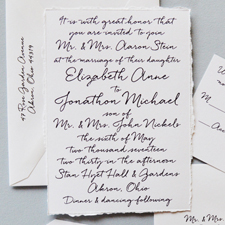 It is with great honor that
you are invited to join
Mr. & Mrs. Aaron Stein
at the marriage of their daughter
Elizabeth Anne
to
Jonathon Michael
son of
Mr. & Mrs. John Nickels
the sixth of May
Two thousand seventeen
Two thirty in the afternoon
Stan Hyet Hall & Gardens
Akron, Ohio
Dinner & dancing following
47 Rose Garden Avenue
Akron, Ohio 44319
M
Mr. & Mrs.